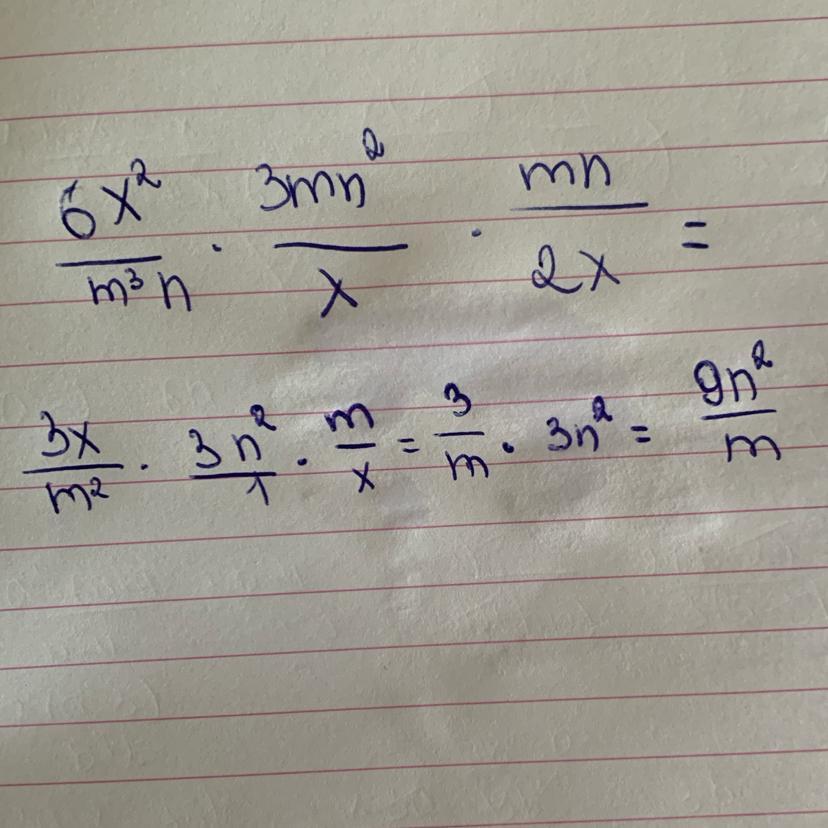 6x²/m³n · 3mn²/x · mn/2x =
3x/m² · 3n²/1 · m/x = 3/m · 3n² = 9n²/m